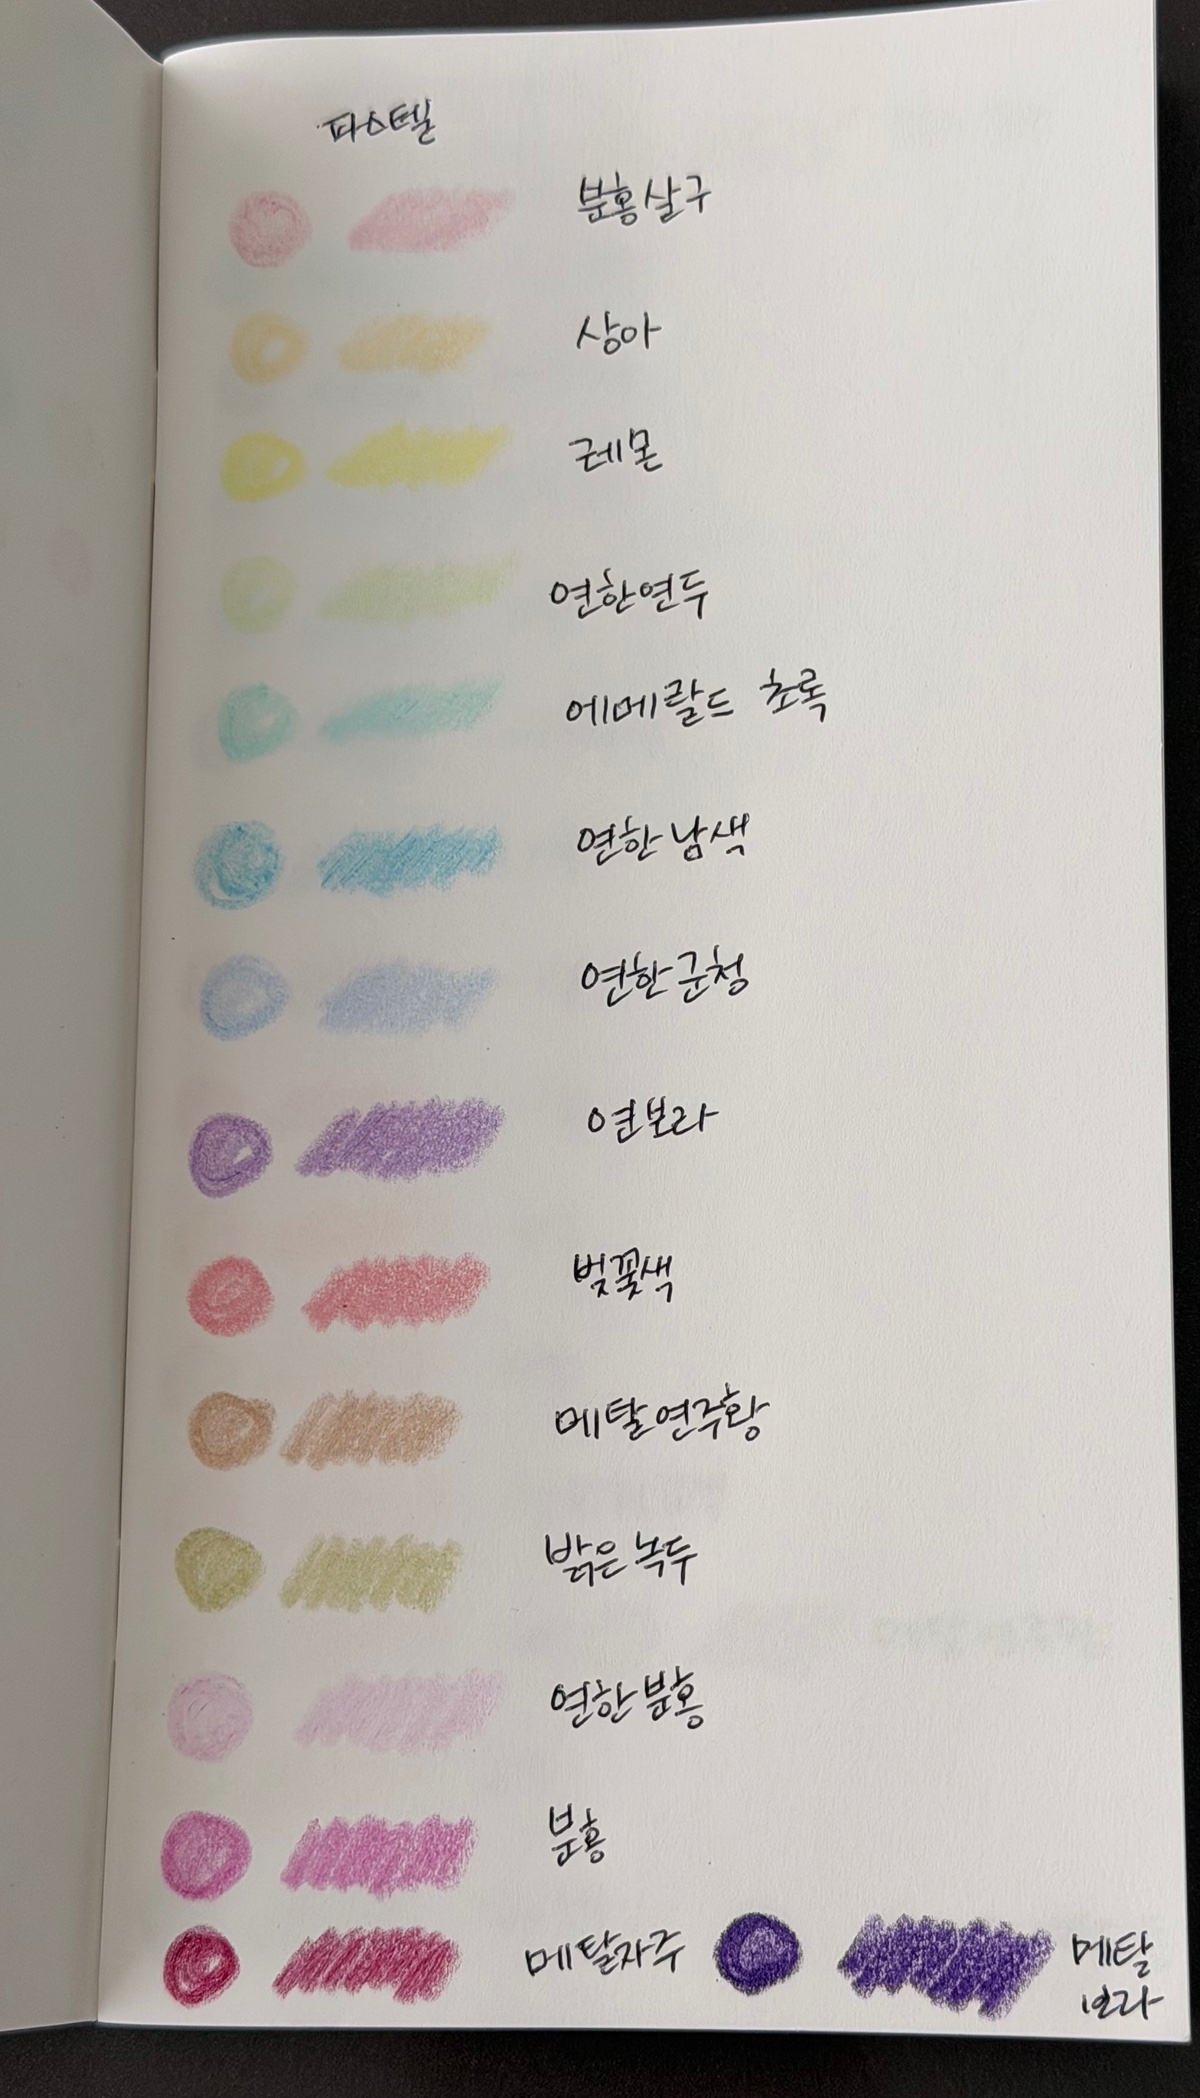 파스텔
분홍살구
상아
레몬
연한연두
에메랄드 초록
연한남색
연한군청
연보라
벚꽃색
메탈연주황
밝은녹두
연한분홍
분홍
메탈자주
메탈
보라